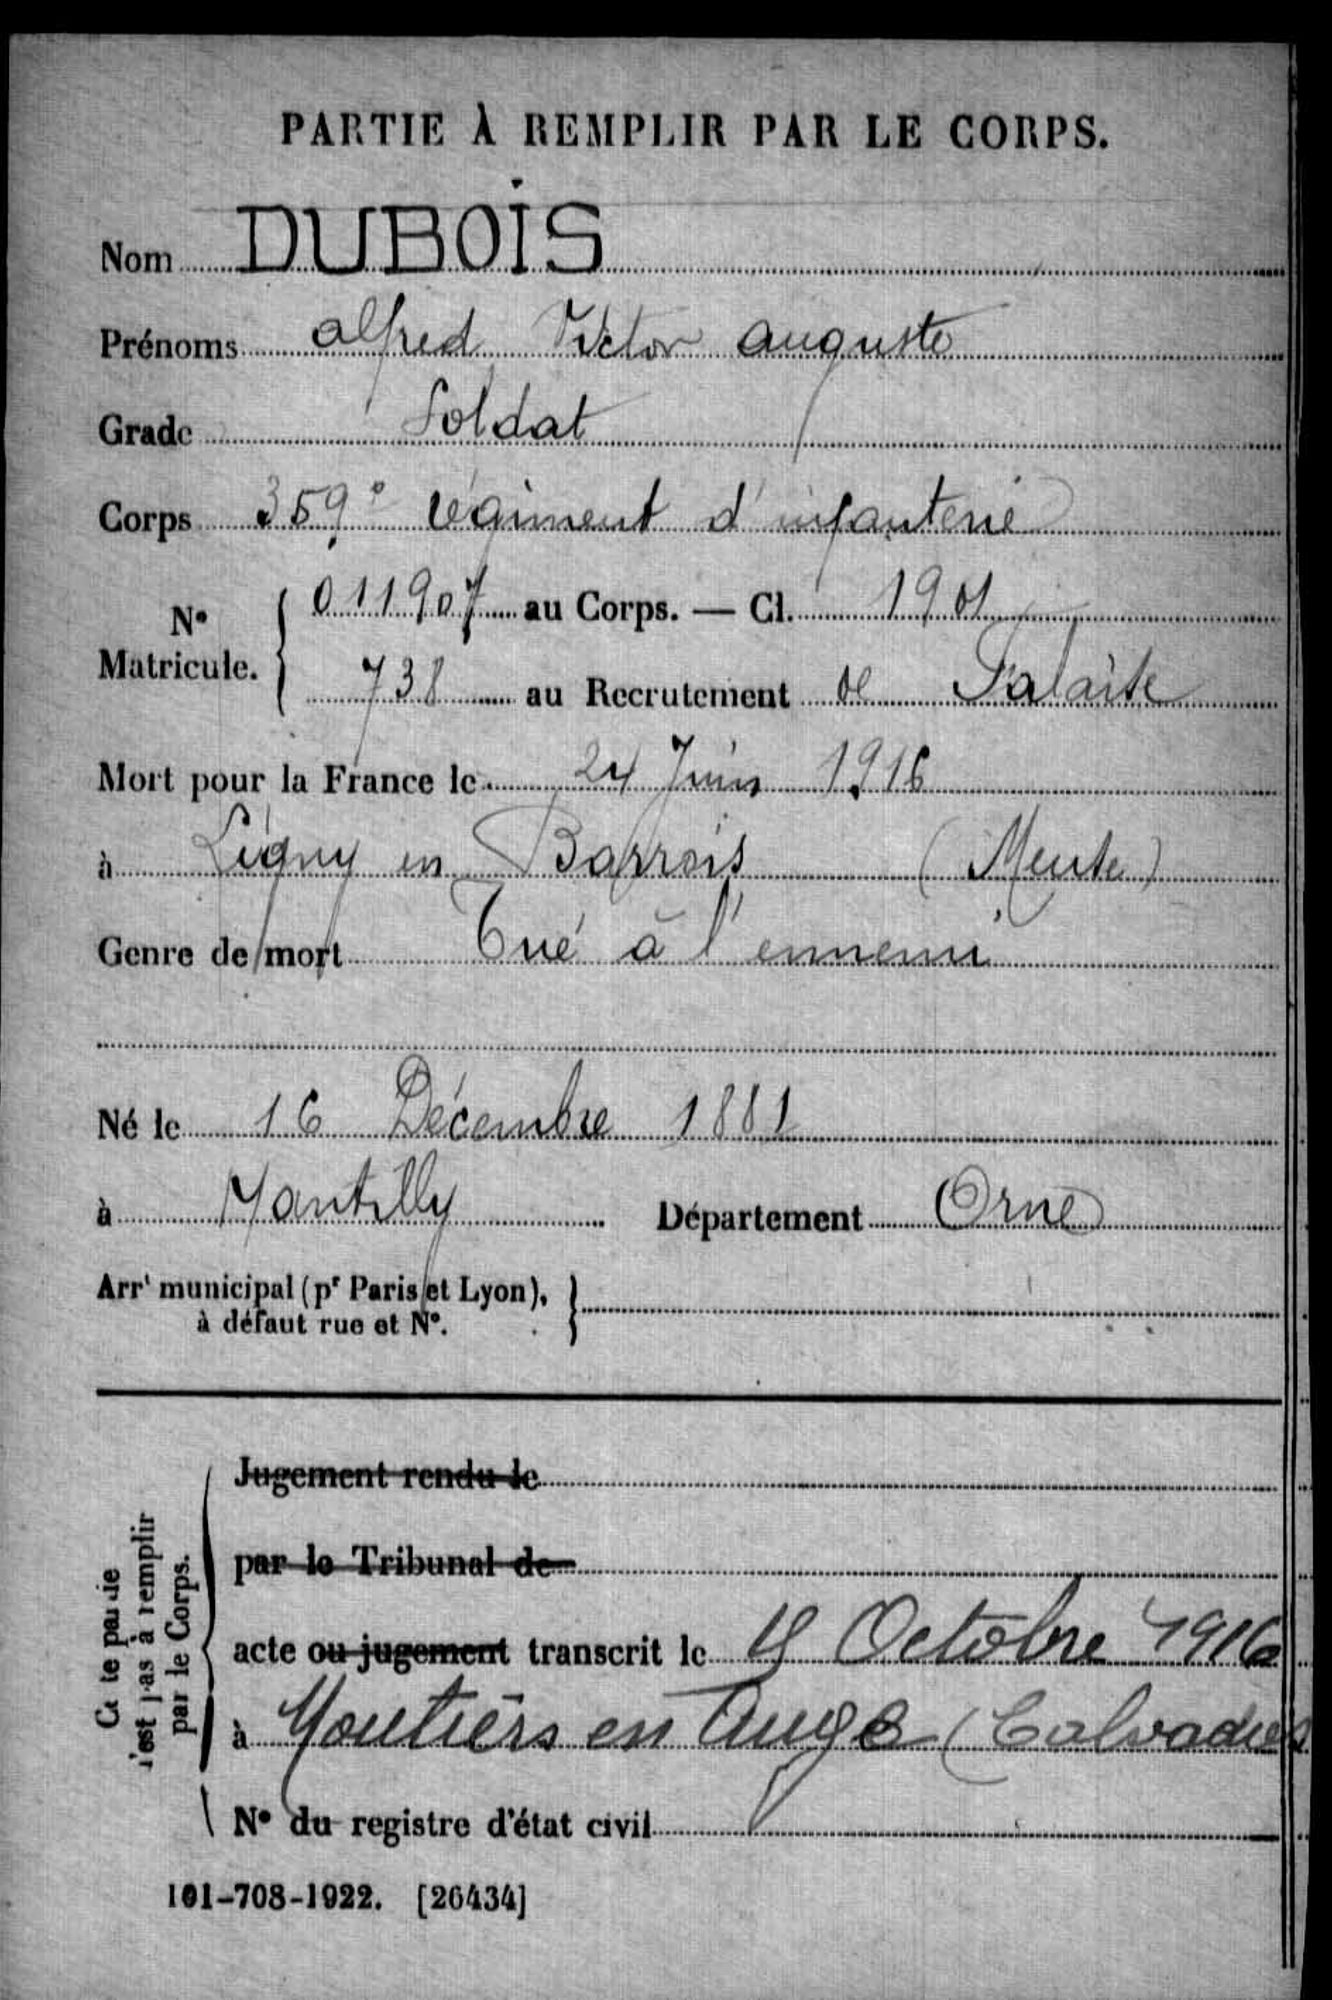 PARTIE À REMPLIR PAR LE CORPS.
Nom DUBOIS
Prénoms alfred Victor auguste
Grade Soldat
Corps 359e régiment d'infanterie
No Matricule. { 011907 au Corps. — Cl. 1901
738 au Recrutement de Falaise
Mort pour la France le 24 Juin 1916
à Ligny en Barrois (Meuse)
Genre de mort Tué à l'ennemi
Né le 16 Décembre 1881
à Mantilly Département Orne
Arrt municipal (pr Paris et Lyon), à défaut rue et No. }
Cette partie n'est pas à remplir par le Corps.
Jugement rendu le
par le Tribunal de
acte ou jugement transcrit le Octobre 1916
à Moutiers en Auge (Calvados
No du registre d'état civil
101-708-1922. [26434]